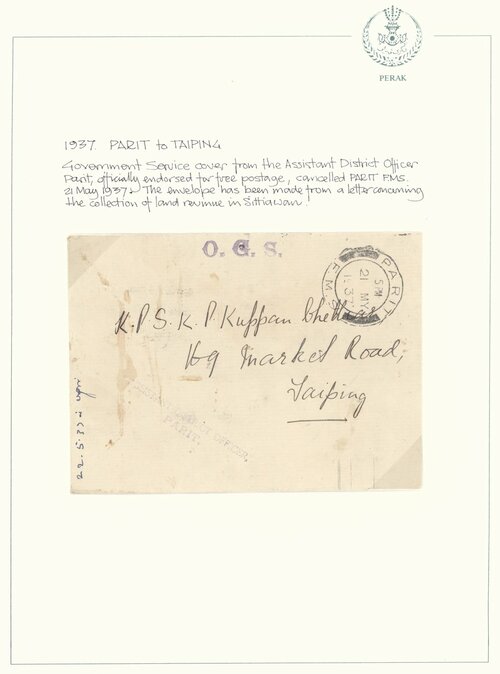 PERAK
1937. PARIT to TAIPING
Government Service cover from the Assistant District Officer
Parit, officially endorsed for free postage, cancelled PARIT F.M.S.
21 May 1937. The envelope has been made from a letter concerning
the collection of land revenue in Sittiawan.
O. G. S.
PARIT
5 PM
21 MY
F.M.S.
K.P.S.K.P. Kuppan Chettiar
169 Market Road,
Taiping
DISTRICT OFFICER,
PARIT.
22.5.37